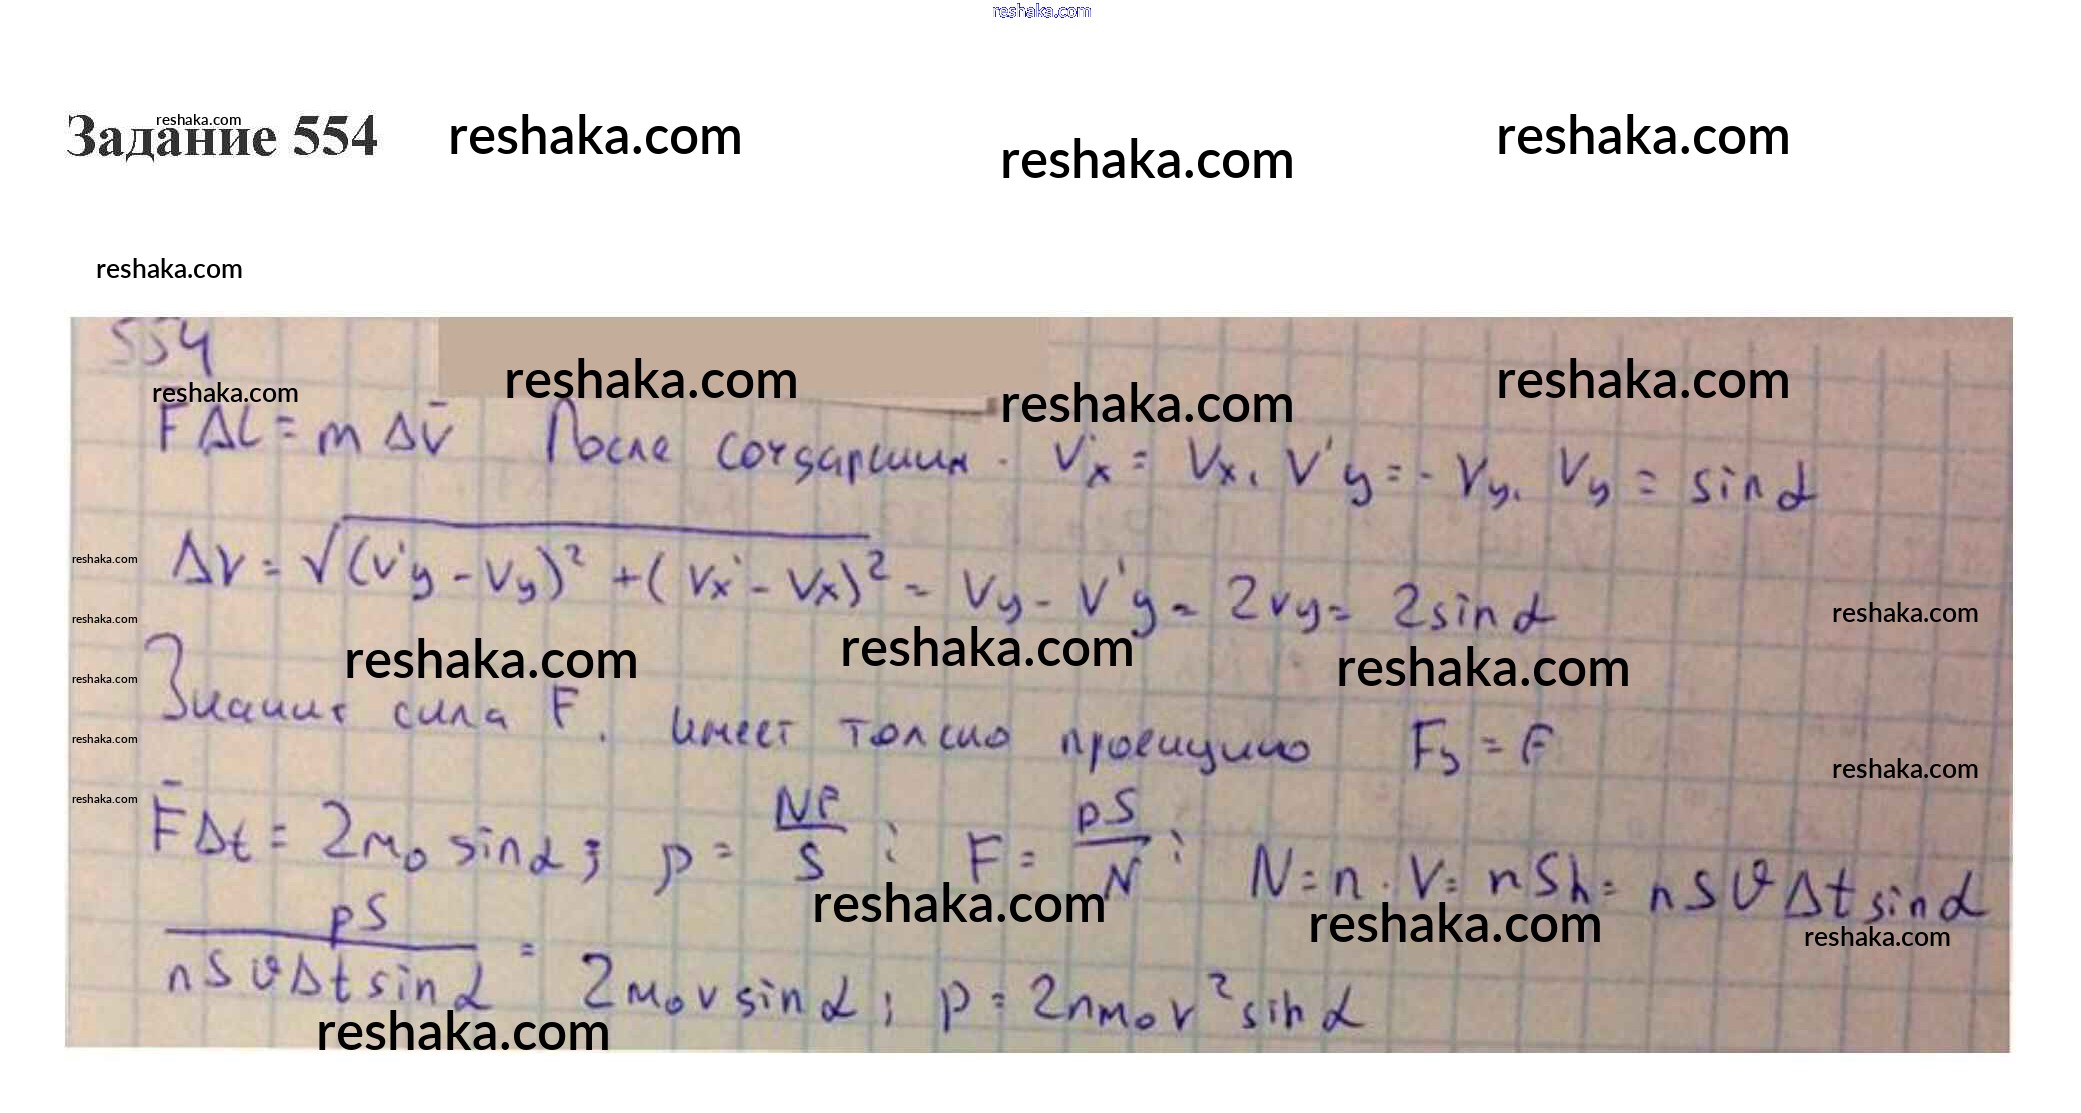 reshaka.com
Задание 554
reshaka.com
reshaka.com
reshaka.com
reshaka.com
reshaka.com
554
reshaka.com
reshaka.com
reshaka.com
reshaka.com
FΔt = mΔv̄ После V'x = Vx, V'y = -Vy, Vy = sinα
reshaka.com
ΔV = √(V'y - Vy)² + (Vx' - Vx)² = Vy - V'y = 2vy = 2sinα
reshaka.com
reshaka.com
reshaka.com
reshaka.com
reshaka.com
reshaka.com
Значит сила F, имеет только проекцию Fy = F
reshaka.com
reshaka.com
reshaka.com
F̄Δt = 2m₀ sinα; p = NF/S; F = pS/N; N = n · V = nSh = nSϑΔt sinα
reshaka.com
reshaka.com
reshaka.com
pS/nSϑΔt sinα = 2m₀v sinα; p = 2nm₀v² sinα
reshaka.com